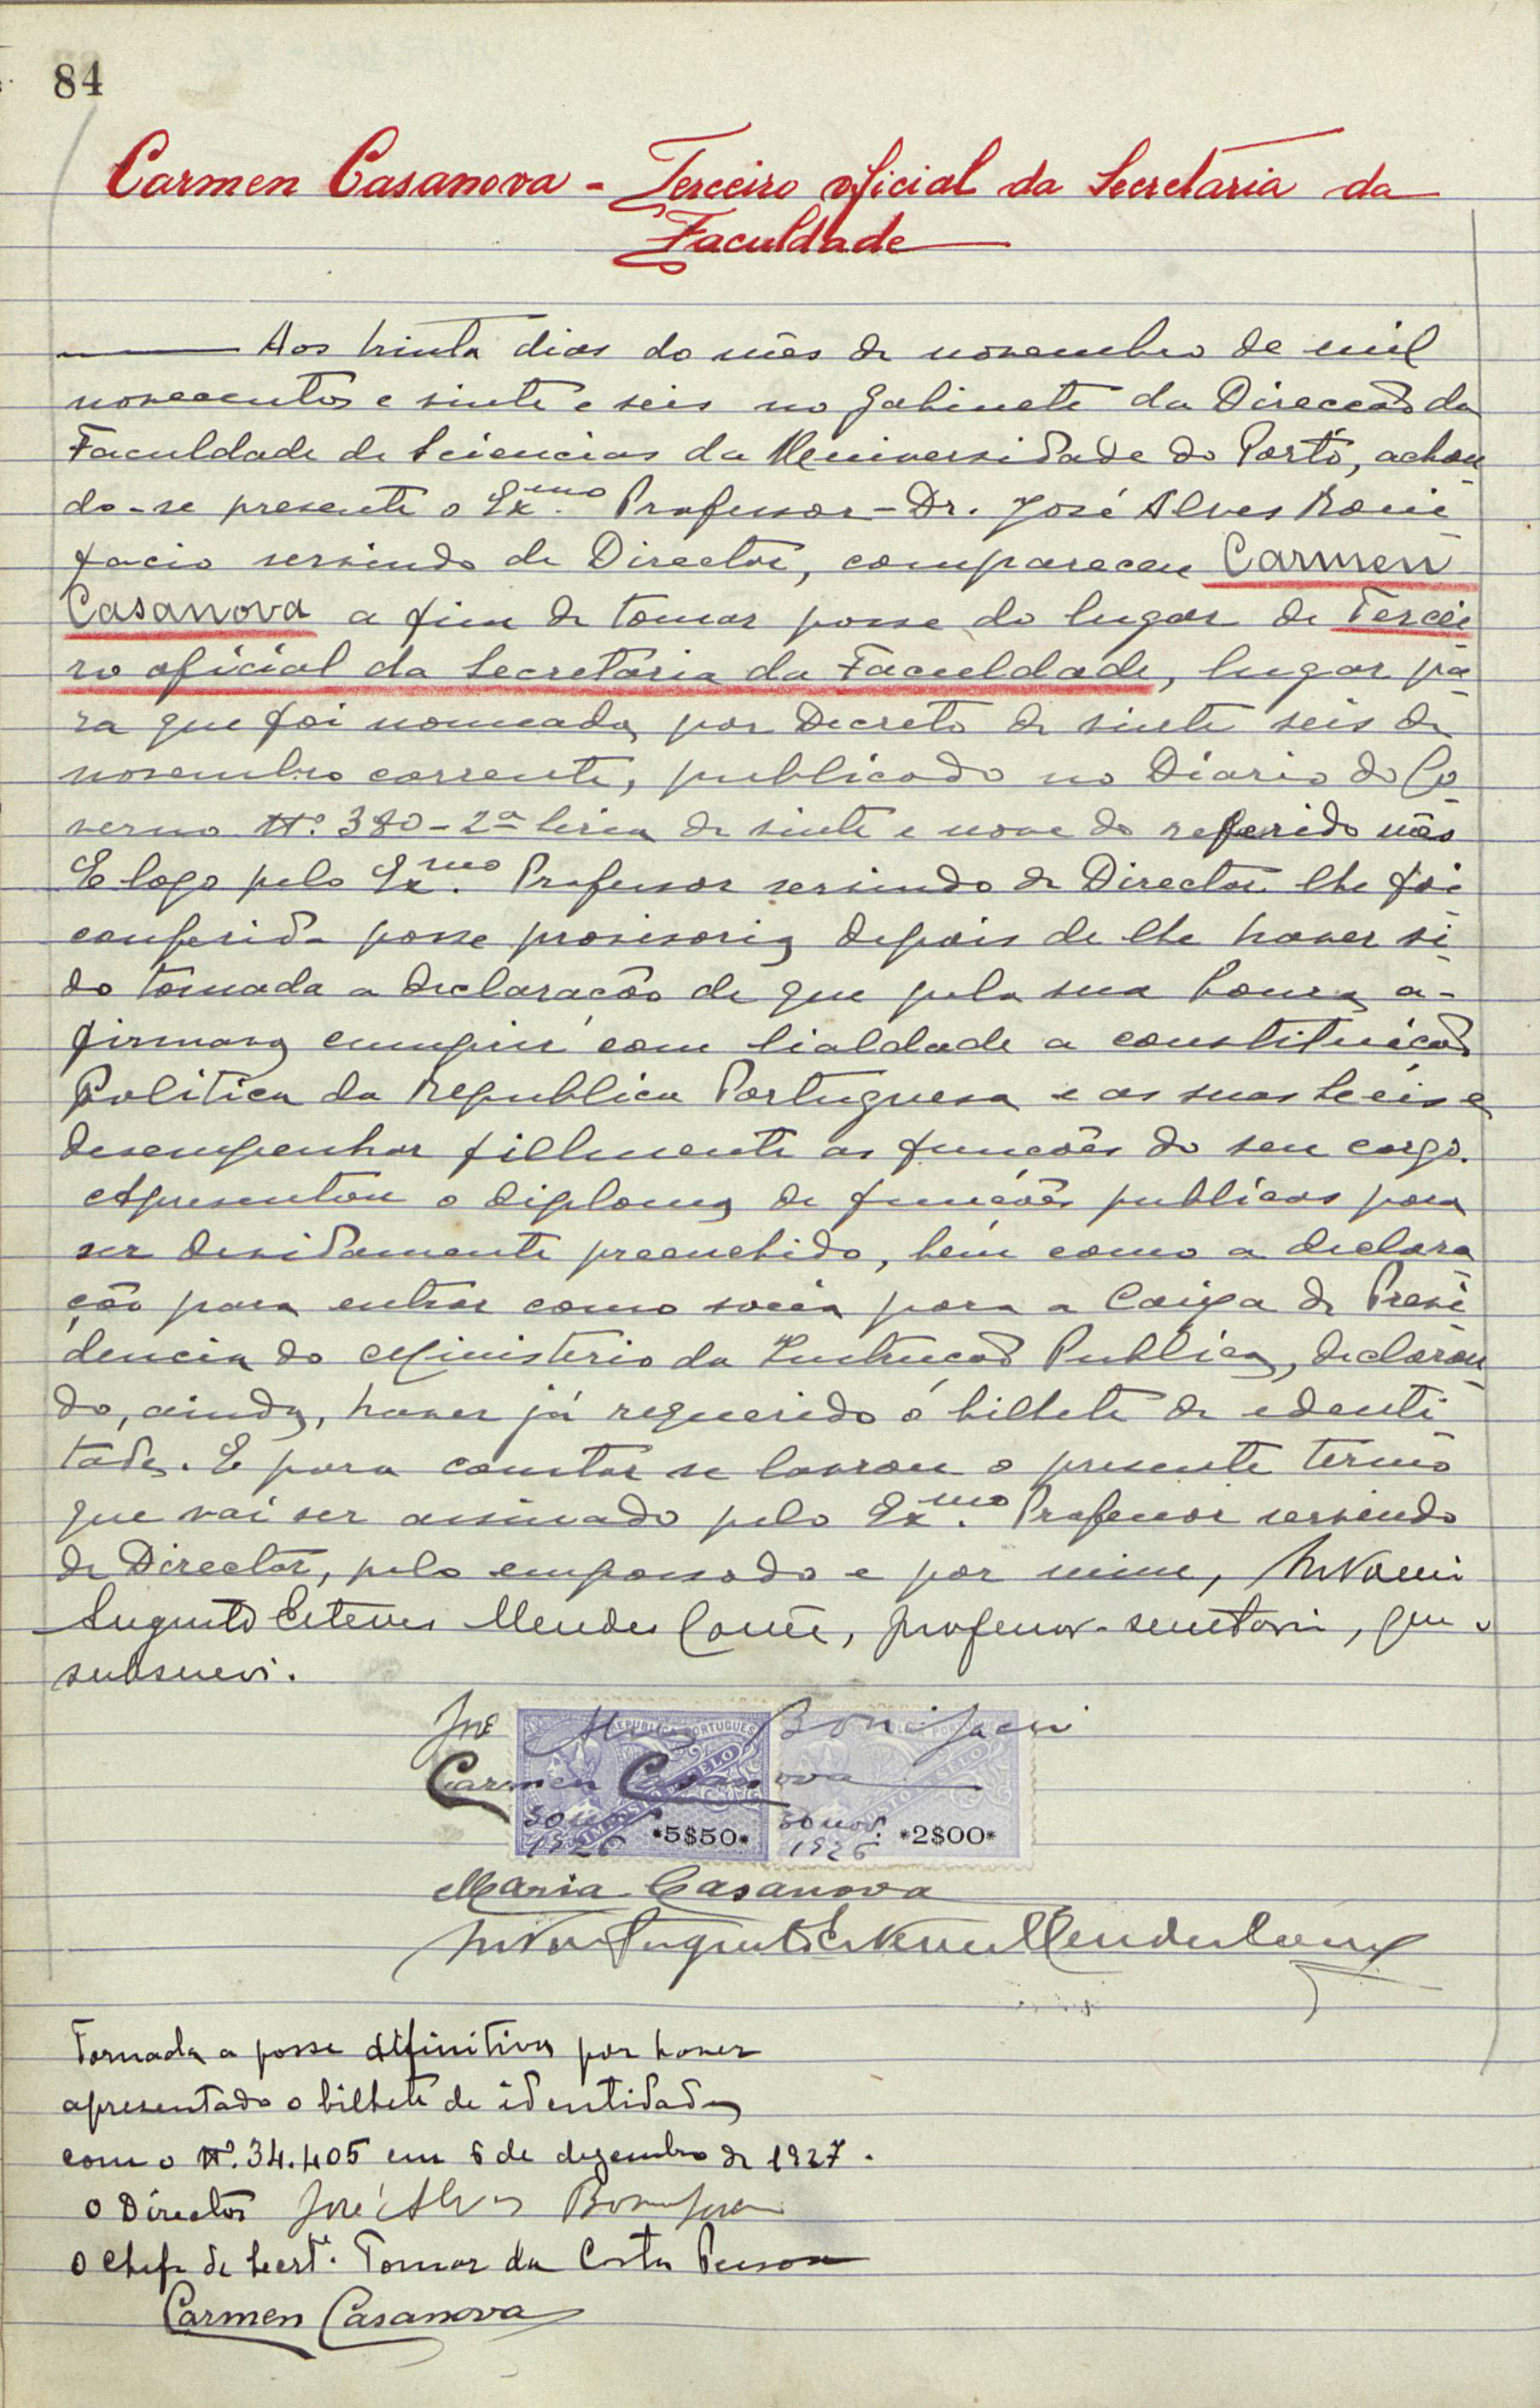 84
Carmen Casanova - Terceiro oficial da Secretaria da
Faculdade
Aos trinta dias do mês de novembro de mil
novecentos e vinte e seis no gabinete da Direcção da
Faculdade de Sciencias da Universidade do Porto, achan
do-se presente o Ex.mo Professor - Dr. José Alves Boni
facio servindo de Director, compareceu Carmen
Casanova a fim de tomar posse do lugar de Tercei
ro oficial da Secretaria da Faculdade, lugar pa
ra que foi nomeada por Decreto de vinte seis de
novembro corrente, publicado no Diario do Go
verno Nº. 380 - 2ª serie de vinte e nove do referido mês
E logo pelo Ex.mo Professor servindo de Director lhe foi
conferida posse provisoria depois de lhe haver si
do tomada a declaração de que pela sua honra a-
firmava cumprir com lialdade a constituição
Politica da Republica Portuguesa e as suas Leis e
desempenhar fielmente as funcões do seu cargo.
Apresentou o diploma de funcões publicas para
ser devidamente preenchido, bem como a declara
ção para entrar como socia para a Caixa de Previ
dencia do Ministerio da Instrucção Publica, declaran
do, ainda, haver já requerido o bilhete de identi
dade. E para constar se lavrou o presente termo
que vai ser assinado pelo Ex.mo Professor servindo
de Director, pelo empossado e por mim, António
Augusto Esteves Mendes Corrêa, professor-secretario, que o
subscrevi.
José Alves Bonifacio
REPUBLICA PORTUGUESA
Carmen Casanova
IMPOSTO DO SELO
30 nov. 1926 *5$50* 30 nov. 1926 *2$00*
Maria Casanova
António Augusto Esteves Mendes Corrêa
Tornada a posse difinitiva por haver
apresentado o bilhete de identidade
com o Nº. 34.405 em 6 de dezembro de 1927.
O Director José Alves Bonifacio
O Chefe de Secrt.ª Tomaz da Costa Pessoa
Carmen Casanova